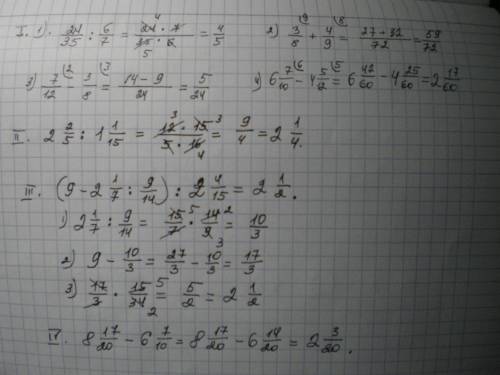 I. 1). 24/35 : 6/7 = 24 · 7 / 35 · 6 = 4/5 2) 3/8 + 4/9 = 27 + 32 / 72 = 59/72
3) 7/12 - 3/8 = 14 - 9 / 24 = 5/24 4) 6 7/10 - 4 5/12 = 6 42/60 - 4 25/60 = 2 17/60
II. 2 2/5 : 1 1/15 = 12 · 15 / 5 · 16 = 9/4 = 2 1/4.
III. (9 - 2 1/7 : 9/14) : 2 4/15 = 2 1/2.
1) 2 1/7 : 9/14 = 15/7 · 14/9 = 10/3
2) 9 - 10/3 = 27/3 - 10/3 = 17/3
3) 17/3 · 15/34 = 5/2 = 2 1/2
IV. 8 17/20 - 6 7/10 = 8 17/20 - 6 14/20 = 2 3/20.